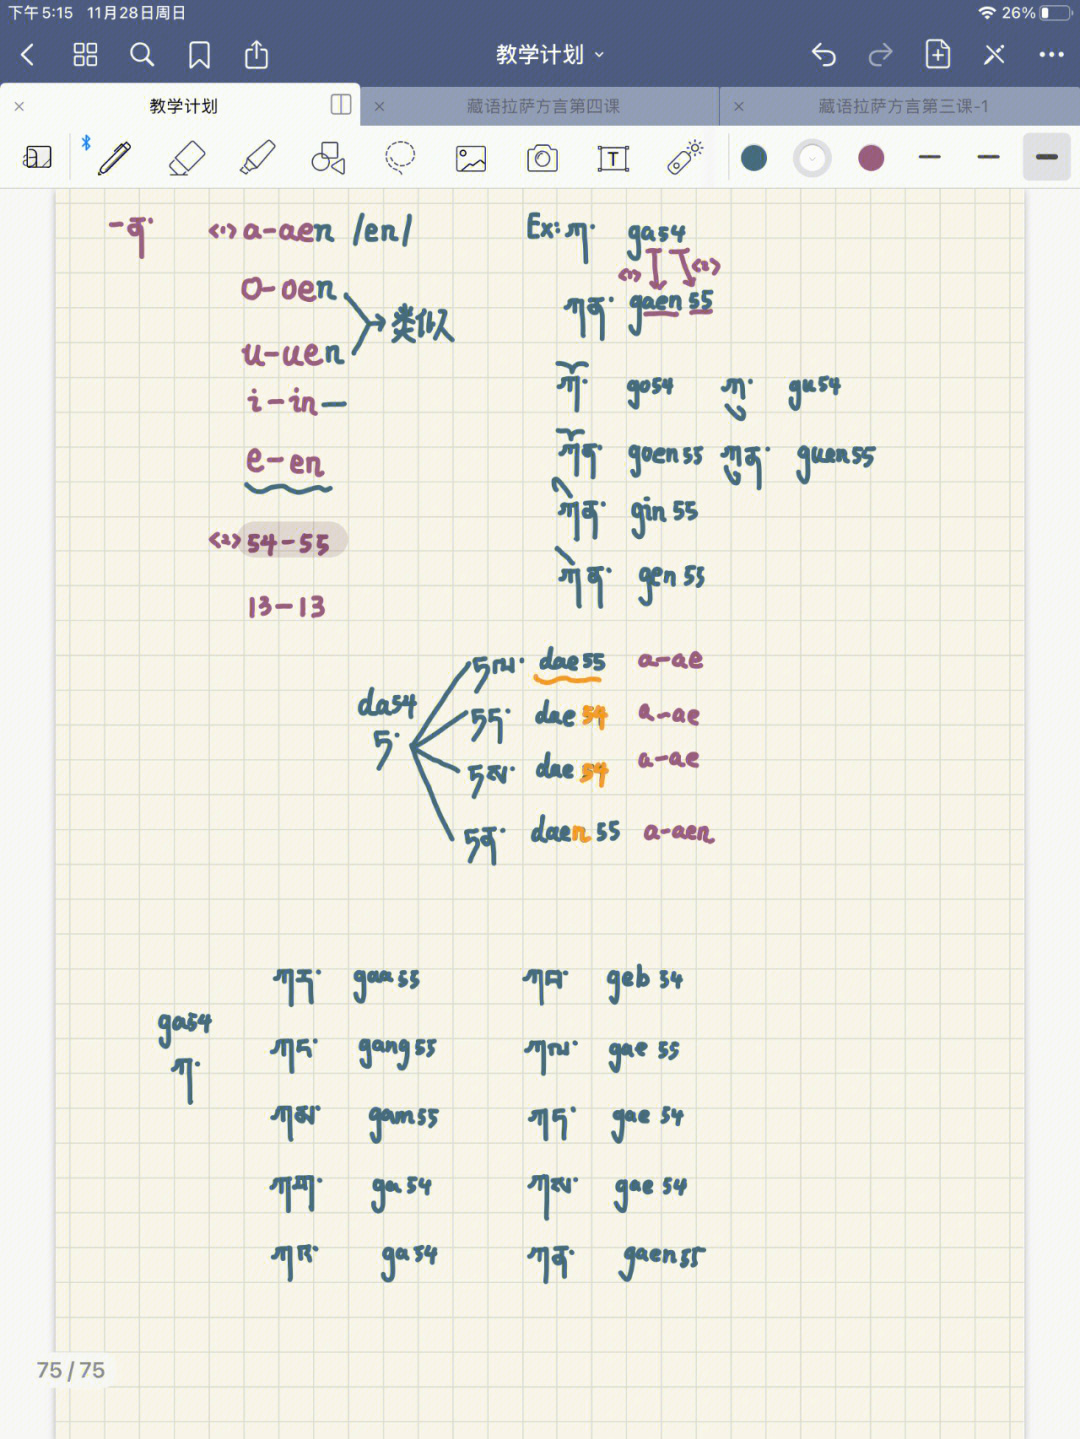 下午5:15 11月28日周日 26%
教学计划
教学计划 藏语拉萨方言第四课 藏语拉萨方言第三课-1
-ན་ <1> a-aen /en/ Ex: ཀ་ ga54
o-oen <1> <2>
类似 ཀན་ gaen 55
u-uen
i-in- ཀོ་ go54 ཀུ་ gu54
e-en ཀོན་ goen55 ཀུན་ guen55
ཀིན་ gin 55
<2> 54-55
ཀེན་ gen 55
13-13
da54 ཏལ་ dae55 a-ae
ཏ་ ཏད་ dae 54 a-ae
ཏས་ dae 54 a-ae
ཏན་ daen 55 a-aen
ཀར་ gaa55 ཀབ་ geb 54
ga54
ཀང་ gang55 ཀལ་ gae 55
ཀ་
ཀམ་ gam55 ཀད་ gae 54
ཀག་ ga54 ཀས་ gae 54
ཀའ་ ga54 ཀན་ gaen55
75/75